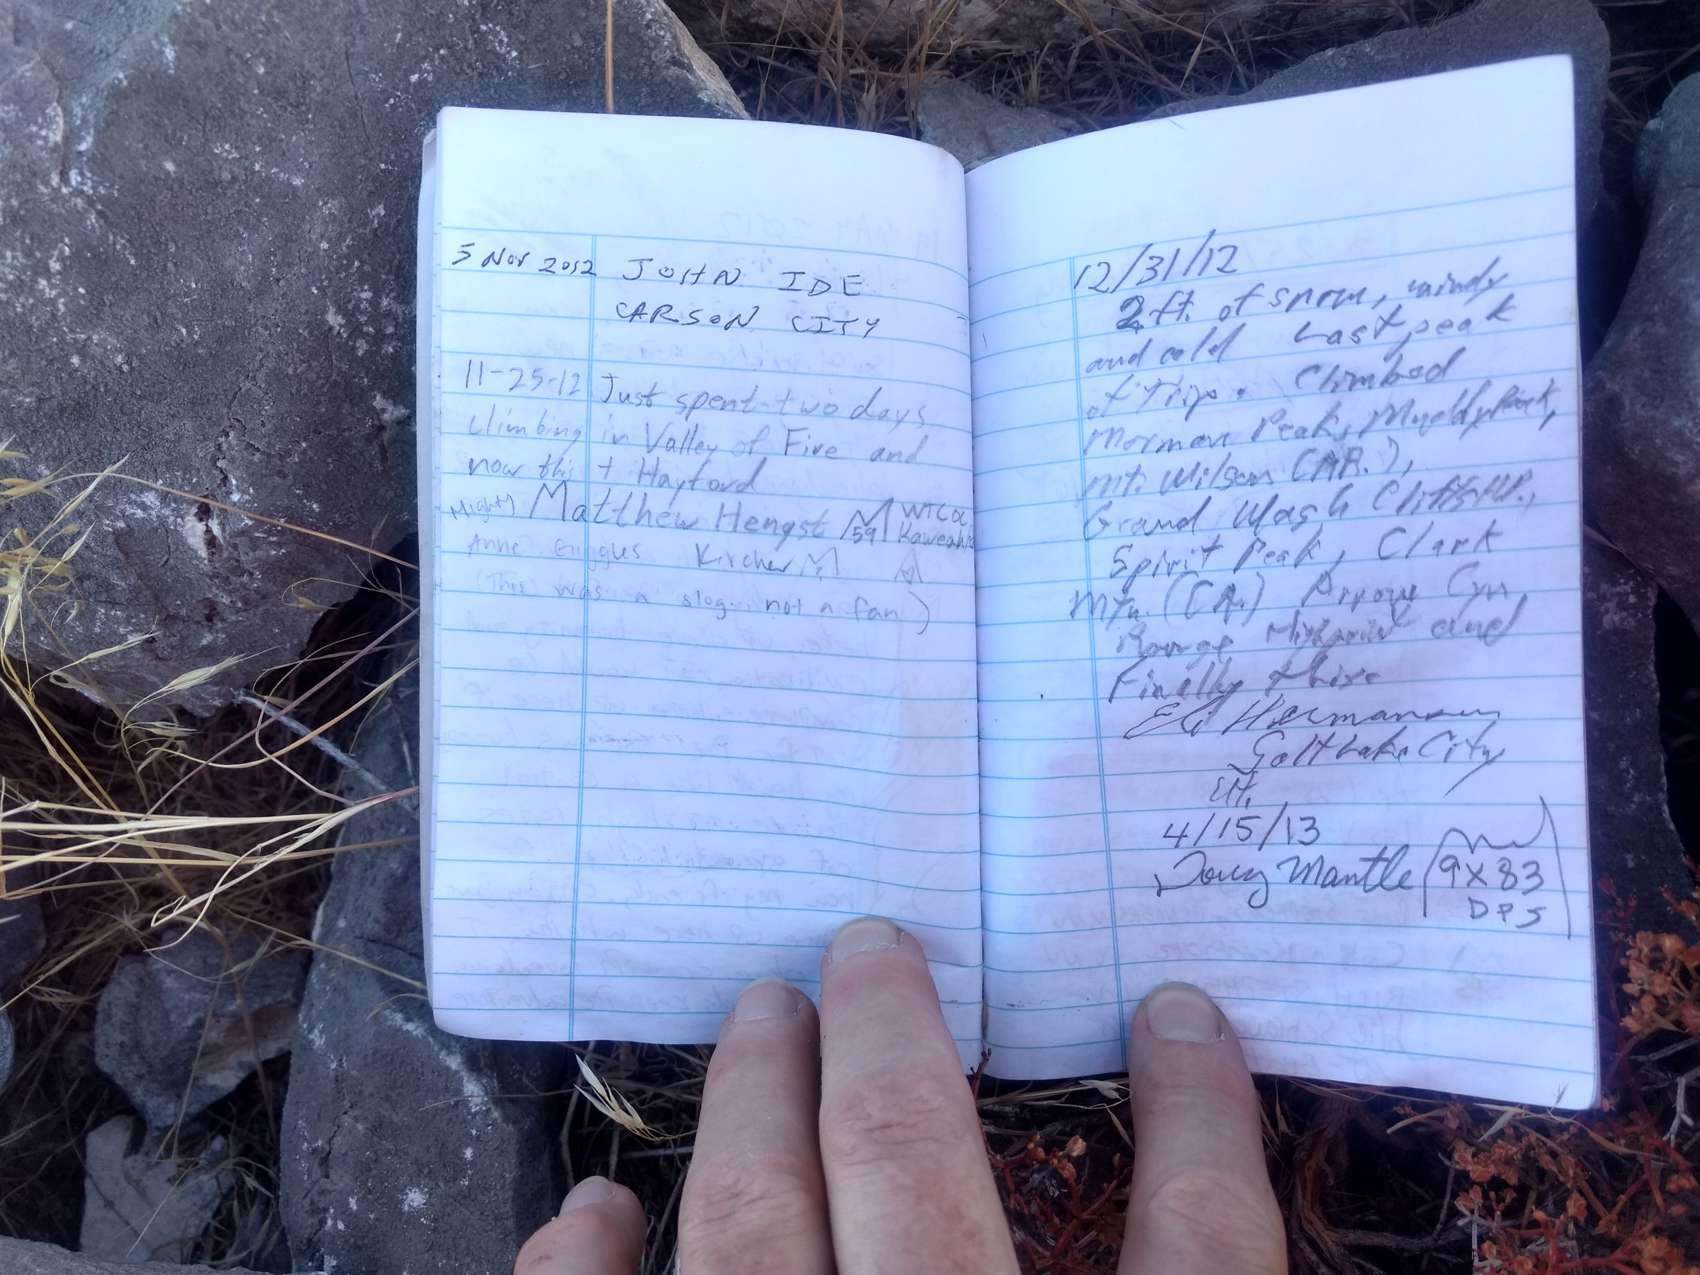 5 Nov 2012 JOHN IDE
CARSON CITY
11-25-12 Just spent two days
climbing in Valley of Fire and
now this + Hayford
Mighty Matthew Hengst 59 WTC OC
Kaweahs
Anne Giggles Kircher
(This was a slog.. not a fan)
12/31/12
2 ft. of snow, windy
and cold Last peak
of Trip. Climbed
Mormon Peak, Muddy Peak,
Mt. Wilson (AR.),
Grand Wash Cliffs HP.,
Spirit Peak, Clark
Mtn. (CA.) Arrow Cyn
Range Highpoint and
Finally this
Ed Hermansen
Salt Lake City
Ut.
4/15/13
Doug Mantle 9X83
DPS